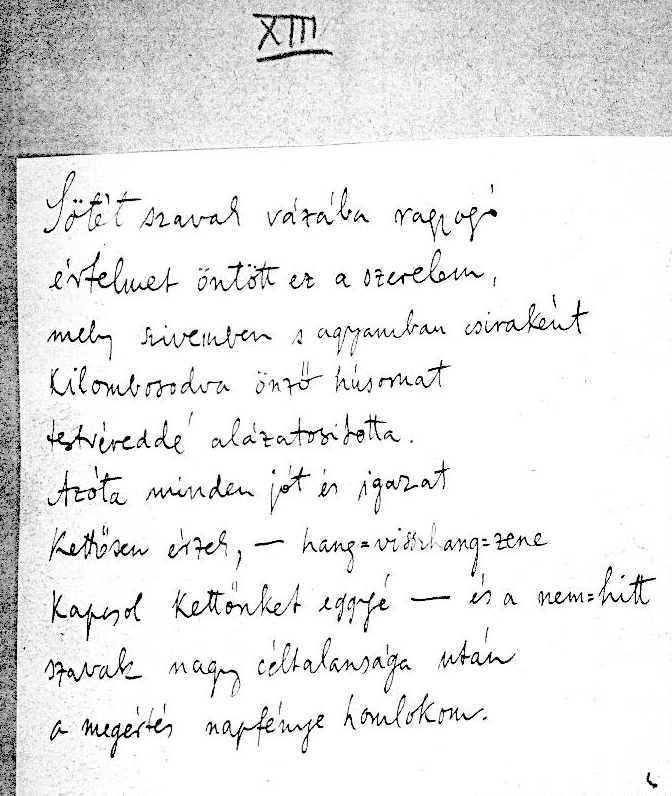 XIII
Sötét szavak vázába ragyogó
értelmet öntött ez a szerelem,
mely szivemben s agyamban csiraként
kilombosodva önző húsomat
testvéreddé alázatosította.
Azóta minden jót és igazat
kettősen érzek, — hang=visszhang=zene
kapcsol kettőnket eggyé — és a nem=hitt
szavak nagy céltalansága után
a megértés napfénye homlokom.